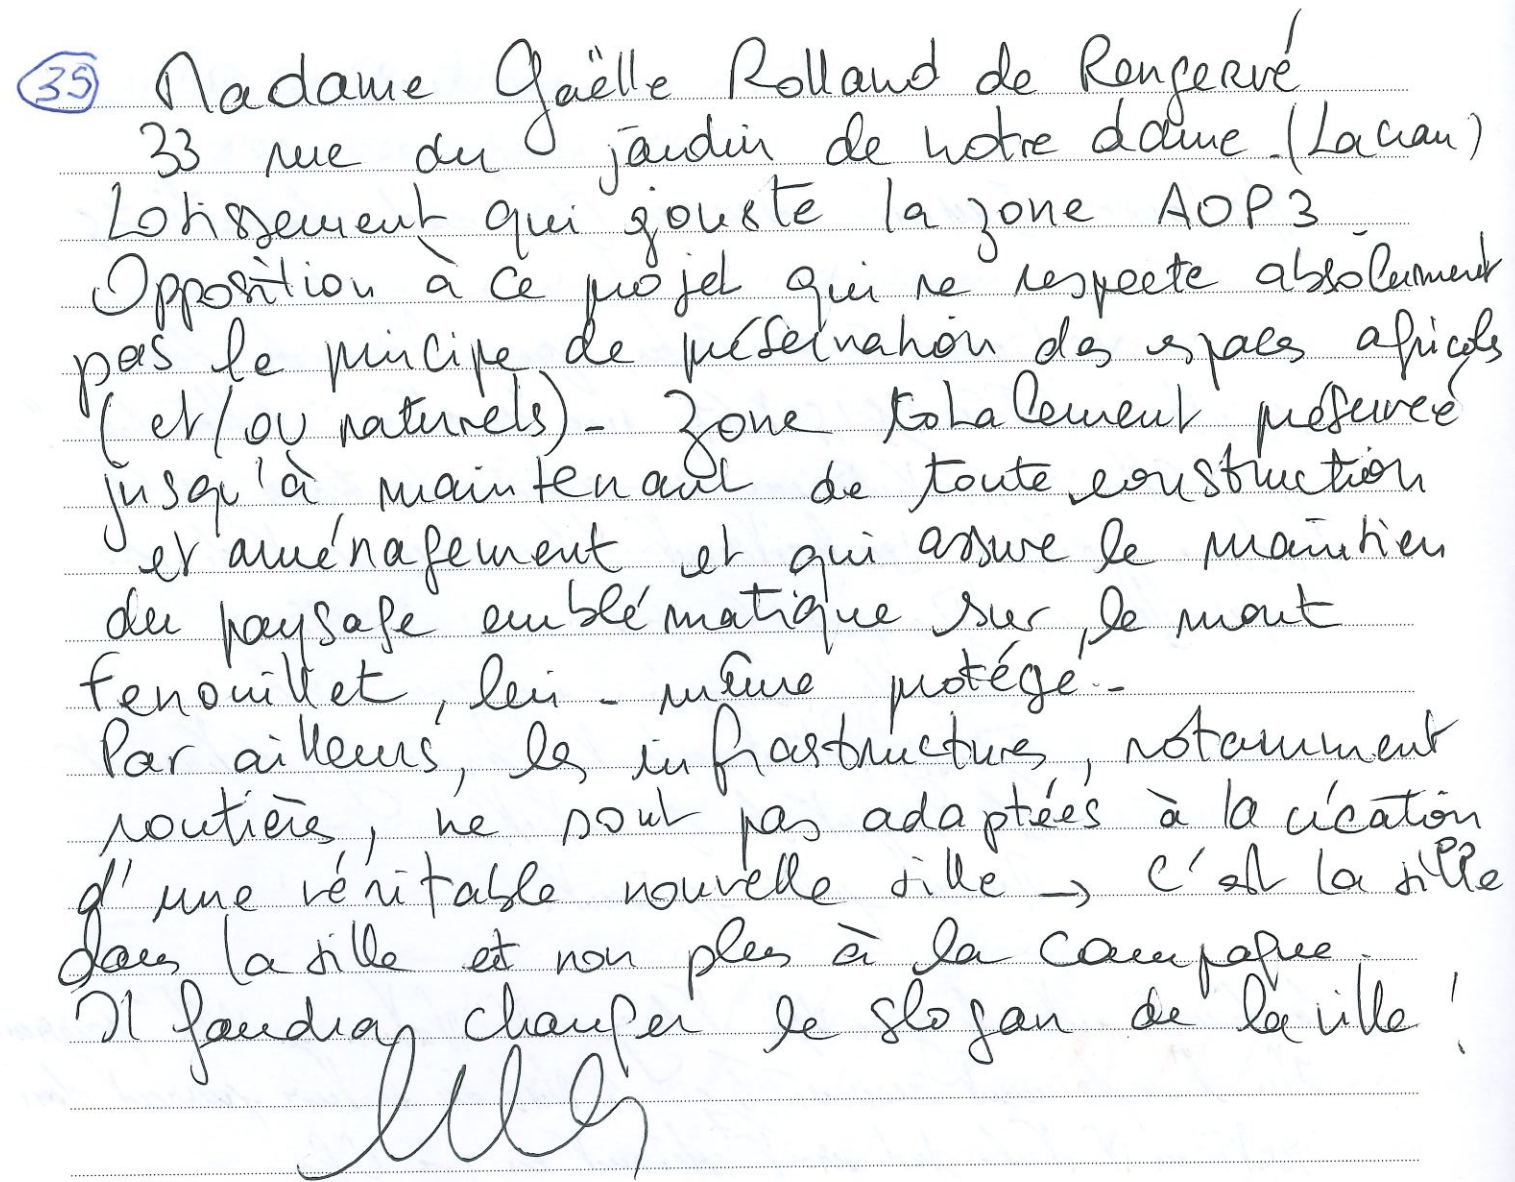 35 Madame Gaëlle Rolland de Rengervé
33 rue du jardin de notre dame. (La crau)
Lotissement qui jouste la zone AOP3
Opposition à ce projet qui ne respecte absolument
pas le principe de préservation des espaces agricols
(et/ou naturels) - Zone totalement préservée
jusqu'à maintenant de toute construction
et aménagement et qui assure le maintien
du paysage emblématique sur le mont
fenouillet, lui-même protégé -
Par ailleurs, les infrastructures, notamment
routières, ne sont pas adaptées à la création
d'une véritable nouvelle ville → c'est la ville
dans la ville et non plus à la campagne.
Il faudra changer le slogan de la ville !